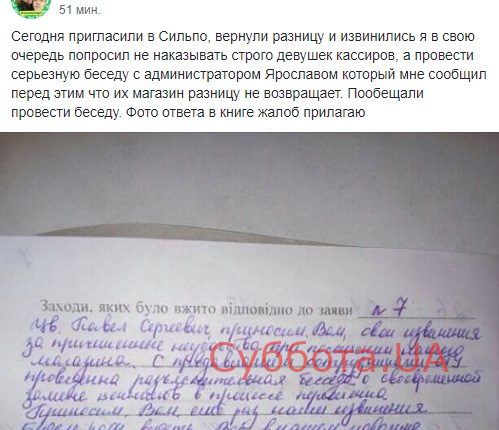 51 мин.
Сегодня пригласили в Сильпо, вернули разницу и извинились я в свою
очередь попросил не наказывать строго девушек кассиров, а провести
серьезную беседу с администратором Ярославом который мне сообщил
перед этим что их магазин разницу не возвращает. Пообещали
провести беседу. Фото ответа в книге жалоб прилагаю
Заходи, яких було вжито відповідно до заяви № 7
Павел Сергеевич приносим Вам свои извинения
за причиненные неудобства при посещении нашего
магазина. С продавцами и сотрудниками
проведенна разъяснительная беседа о своевременной
замене ценников в процессе переоценки
Приносим Вам еще раз наши извинения
Суббота.UA